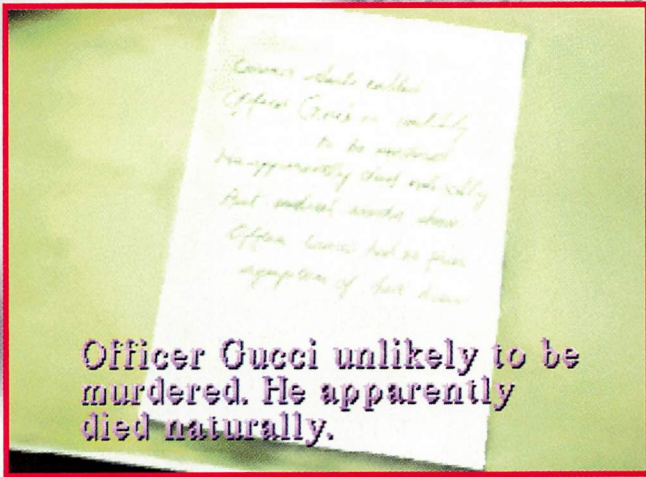 Coroner
called
Officer Gucci unlikely
to be murdered
He apparently died naturally
But medical records show
Officer Gucci had no prior
symptom of
Officer Gucci unlikely to be
murdered. He apparently
died naturally.